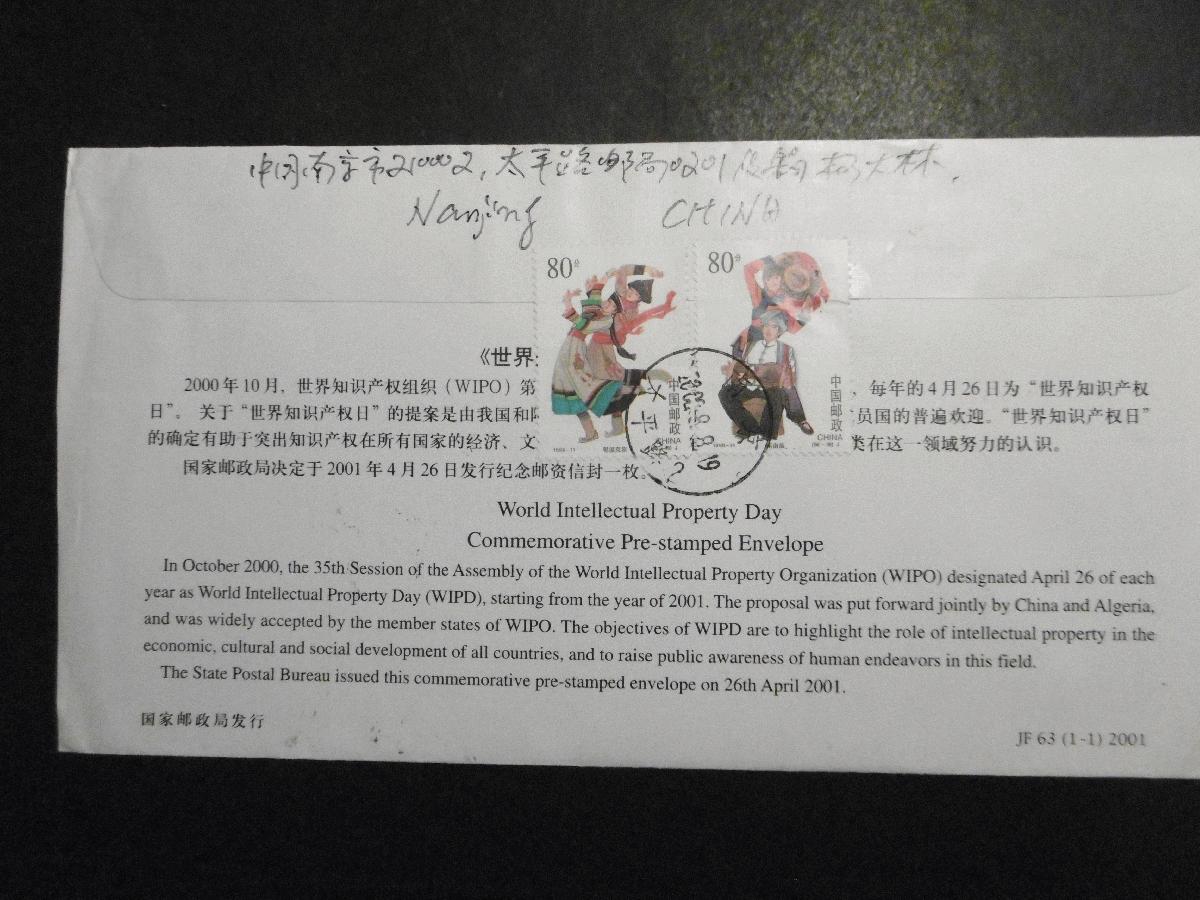 中国南京市210002,太平路邮局0201 林大林.
Nanjing CHINA
80分 80分
中国邮政 CHINA
中国邮政 CHINA
《世界
2000年10月，世界知识产权组织（WIPO）第 ，每年的4月26日为“世界知识产权
日”。关于“世界知识产权日”的提案是由我国和阿 员国的普遍欢迎。“世界知识产权日”
的确定有助于突出知识产权在所有国家的经济、文 类在这一领域努力的认识。
国家邮政局决定于2001年4月26日发行纪念邮资信封一枚。
World Intellectual Property Day
Commemorative Pre-stamped Envelope
In October 2000, the 35th Session of the Assembly of the World Intellectual Property Organization (WIPO) designated April 26 of each
year as World Intellectual Property Day (WIPD), starting from the year of 2001. The proposal was put forward jointly by China and Algeria,
and was widely accepted by the member states of WIPO. The objectives of WIPD are to highlight the role of intellectual property in the
economic, cultural and social development of all countries, and to raise public awareness of human endeavors in this field.
The State Postal Bureau issued this commemorative pre-stamped envelope on 26th April 2001.
国家邮政局发行
JF 63 (1-1) 2001